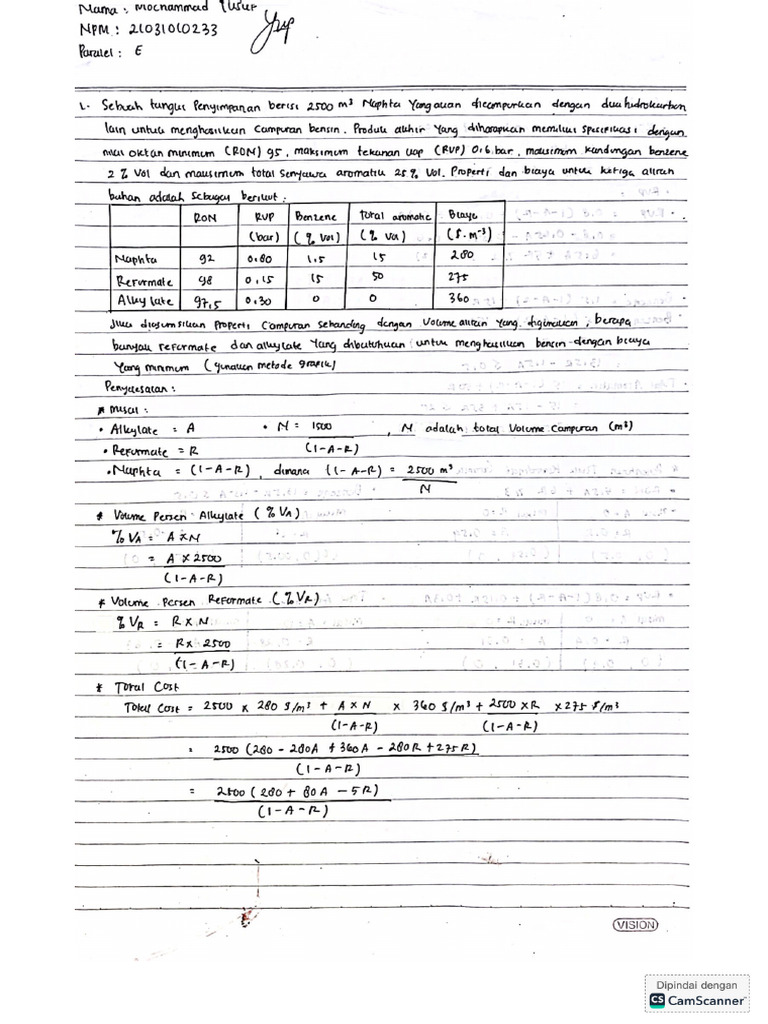 Nama : Mochammad Yusuf
NPM : 21031010233
Paralel : E
1. Sebuah tangki Penyimpanan berisi 2500 m³ Naphta Yang akan dicampurkan dengan dua hidrokarbon
lain untuk menghasilkan Campuran bensin. Produk akhir Yang diharapkan memiliki Spesifikasi dengan
nilai oktan minimum (RON) 95, maksimum tekanan uap (RVP) 0,6 bar, maksimum kandungan benzene
2 % Vol dan maksimum total Senyawa aromatik 25 % Vol. Properti dan biaya untuk ketiga aliran
bahan adalah Sebagai berikut :
RON RVP Benzene total aromatic Biaya
(bar) (% Vol) (% Vol) ($.m⁻³)
Naphta 92 0.80 1.5 15 280
Reformate 98 0.15 15 50 275
Alkylate 97,5 0.30 0 0 360
Jika diasumsikan Properti Campuran Sebanding dengan Volume aliran Yang digunakan, berapa
banyak reformate dan alkylate Yang dibutuhkan untuk menghasilkan bensin dengan biaya
Yang minimum (gunakan metode grafik)
Penyelesaian :
* Misal :
• Alkylate = A • N = 1500 / (1-A-R) , N adalah total Volume Campuran (m³)
• Reformate = R
• Naphta = (1-A-R) , dimana (1-A-R) = 2500 m³ / N
* Volume Persen Alkylate (% VA)
% VA = A x N
= A x 2500
(1-A-R)
* Volume Persen Reformate (% VR)
% VR = R x N
= R x 2500
(1-A-R)
* Total Cost
Total Cost = 2500 x 280 $/m³ + A x N / (1-A-R) x 360 $/m³ + 2500 x R / (1-A-R) x 275 $/m³
= 2500 (280 - 280A + 360A - 280R + 275R)
(1-A-R)
= 2500 (280 + 80A - 5R)
(1-A-R)
VISION
Dipindai dengan
CS CamScanner